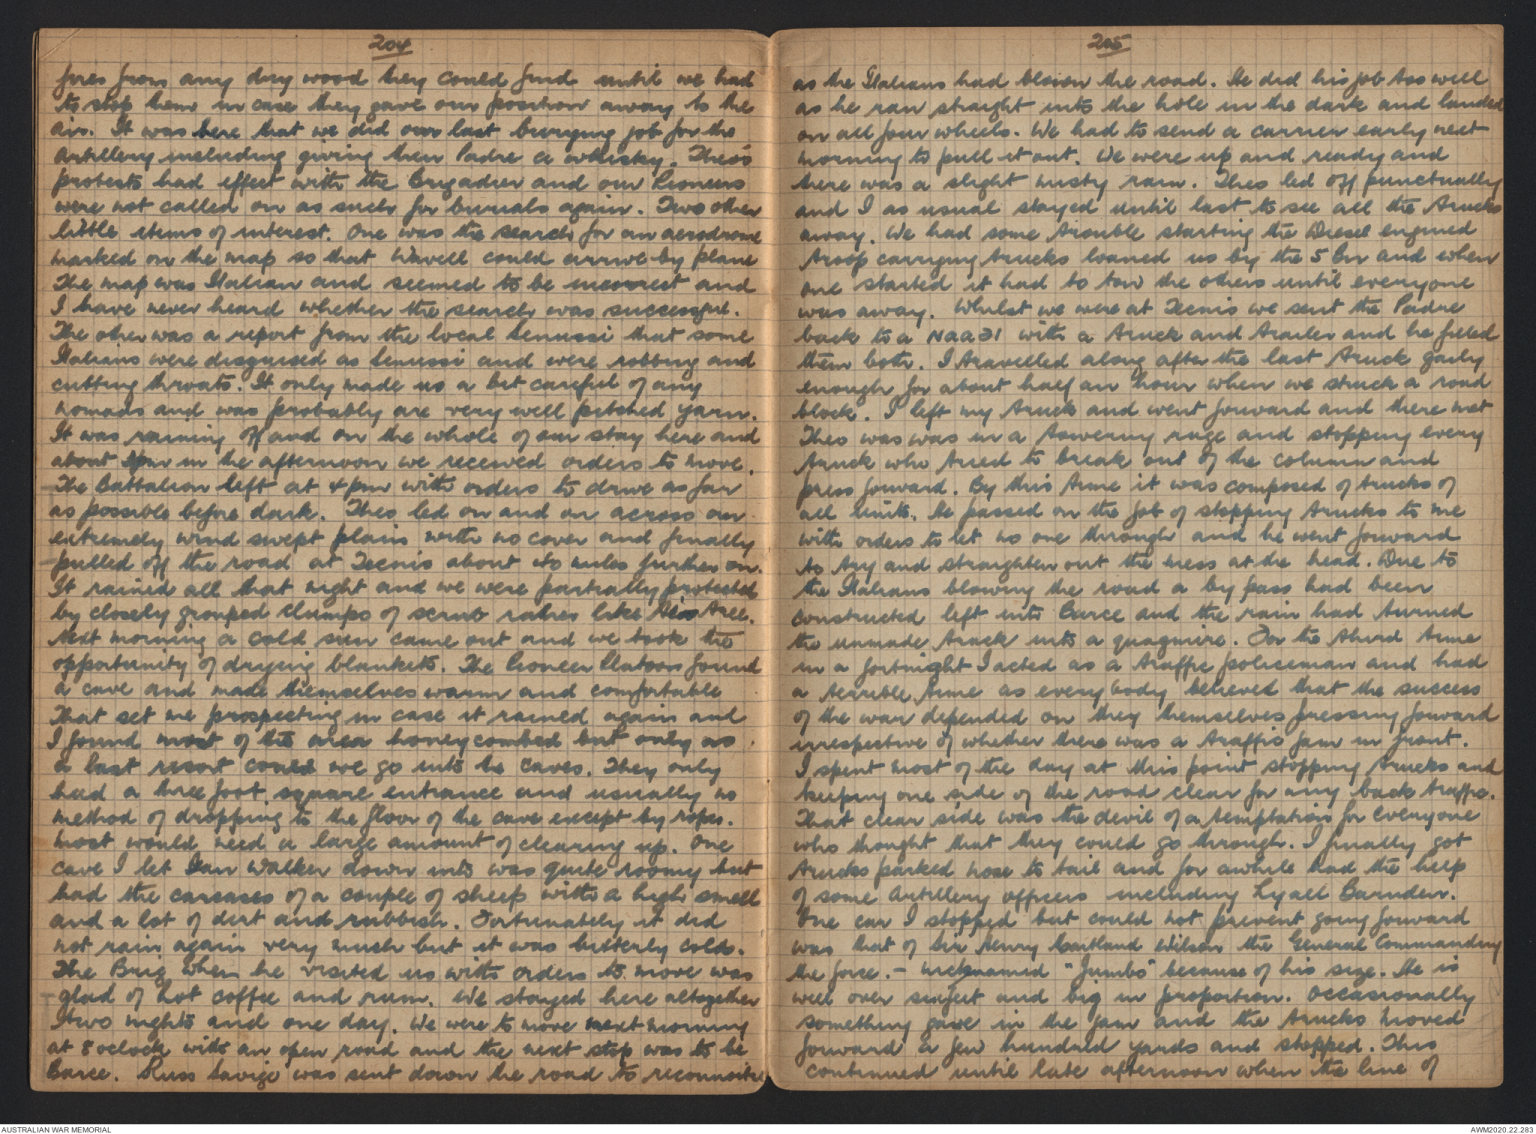 204
fires from any dry wood they could find until we had
to stop them in case they gave our position away to the
air. It was here that we did our last burying job for the
artillery including giving their Padre a whisky. Theo's
protests had effect with the Brigadier and our Pioneers
were not called on as such for burials again. Two other
little items of interest. One was the search for an aerodrome
marked on the map so that Wavell could arrive by plane
The map was Italian and seemed to be incorrect and
I have never heard whether the search was successful.
The other was a report from the local Senussi that some
Italians were disguised as Senussi and were robbing and
cutting throats. It only made us a bit careful of any
nomads and was probably are very well pitched yarn.
It was raining off and on the whole of our stay here and
about in the afternoon we received orders to move.
The Battalion left at 4pm with orders to drive as far
as possible before dark. Theo led on and on across an
extremely wind swept plain with no cover and finally
pulled off the road at Tecnis about miles further on.
It rained all that night and we were partially protected
by closely grouped clumps of scrub rather like Tree.
Next morning a cold sun came out and we took the
opportunity of drying blankets. The Pioneer Platoon found
a cave and made themselves warm and comfortable
That set me prospecting in case it rained again and
I found most of the area honeycombed but only as
a last resort could we go into the caves. They only
had a three foot square entrance and usually no
method of dropping to the floor of the cave except by ropes.
Most would need a large amount of clearing up. One
cave I let Ian Walker down into was quite roomy but
had the carcases of a couple of sheep with a high smell
and a lot of dirt and rubbish. Fortunately it did
not rain again very much but it was bitterly cold.
The Brig when he visited us with orders to move was
glad of hot coffee and rum. We stayed here altogether
two nights and one day. We were to move next morning
at 8 oclock with an open road and the next stop was to be
Barce. Russ Savige was sent down the road to reconnoitre
205
as the Italians had blown the road. He did his job too well
as he ran straight into the hole in the dark and landed
on all four wheels. We had to send a carrier early next
morning to pull it out. We were up and ready and
there was a slight misty rain. Theo led off punctually
and I as usual stayed until last to see all the trucks
away. We had some trouble starting the Diesel engined
troop carrying trucks loaned us by the 5 Bn and when
one started it had to tow the others until everyone
was away. Whilst we were at Tecnis we sent the Padre
back to a NAAFI with a truck and trailer and he filled
them both. I travelled along after the last truck gaily
enough for about half an hour when we struck a road
block. I left my truck and went forward and there met
Theo was was in a towering rage and stopping every
truck who tried to break out of the column and
press forward. By this time it was composed of trucks of
all units. He passed on the job of stopping trucks to me
with orders to let no one through and he went forward
to try and straighten out the mess at the head. Due to
the Italians blowing the road a by pass had been
constructed left into Barce and the rain had turned
the unmade track into a quagmire. For the third time
in a fortnight I acted as a traffic policeman and had
a terrible time as everybody believed that the success
of the war depended on they themselves pressing forward
irrespective of whether there was a traffic jam in front.
I spent most of the day at this point stopping trucks and
keeping one side of the road clear for any back traffic.
That clear side was the devil of a temptation for everyone
who thought that they could go through. I finally got
trucks parked nose to tail and for awhile had the help
of some Artillery officers including Lyall Barnden.
One car I stopped but could not prevent going forward
was that of Sir Henry Maitland Wilson the General Commanding
the force. - nicknamed "Jumbo" because of his size. He is
well over six feet and big in proportion. Occasionally
something gave in the jam and the trucks moved
forward a few hundred yards and stopped. This
continued until late afternoon when the line of
AUSTRALIAN WAR MEMORIAL
AWM2020.22.283